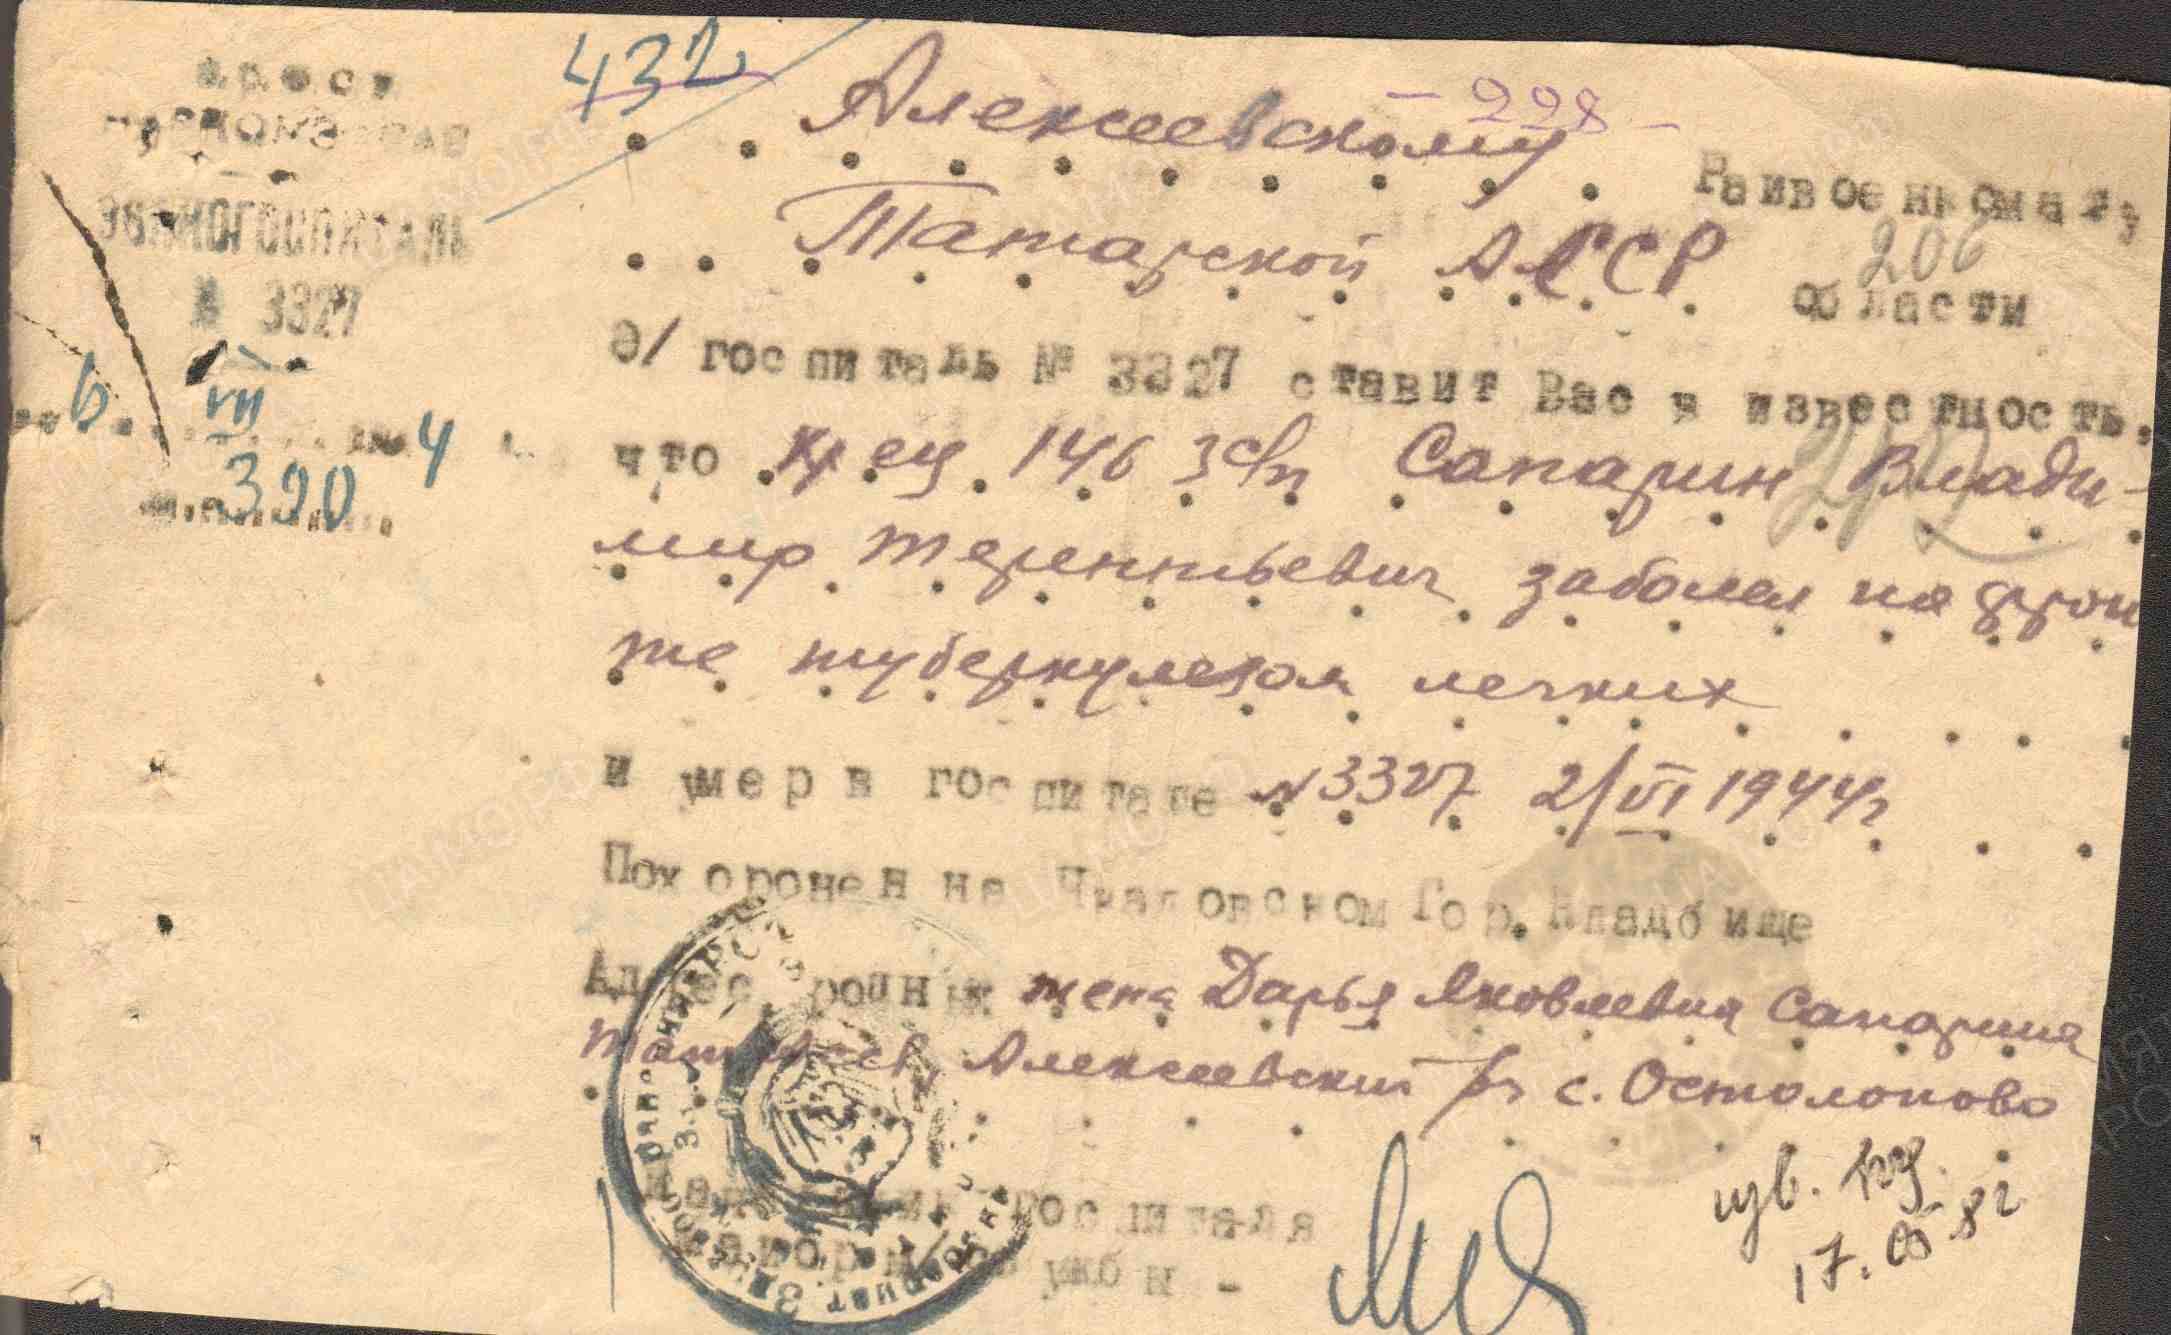 432
- 228 -
ЭВАКОГОСПИТАЛЬ
№ 3327
6. VII 4
390
Алексеевскому Райвоенкомату
206
Татарской АССР области
Э/ госпиталь № 3327 ставит Вас в известность,
что кр-ец 146 зсп Сапарин Влади-
мир Терентьевич заболел на фрон
те туберкулезом легких
и умер в госпитале № 3327 2/VI 1944г
Похоронен на Чкаловском Гор. Кладбище
Адрес родных жена Дарья Яковлевна Сапарина
Тат АССР, Алексеевский р/н с. Остолопово
госпиталя
майор службы -
изв.
17. 8г